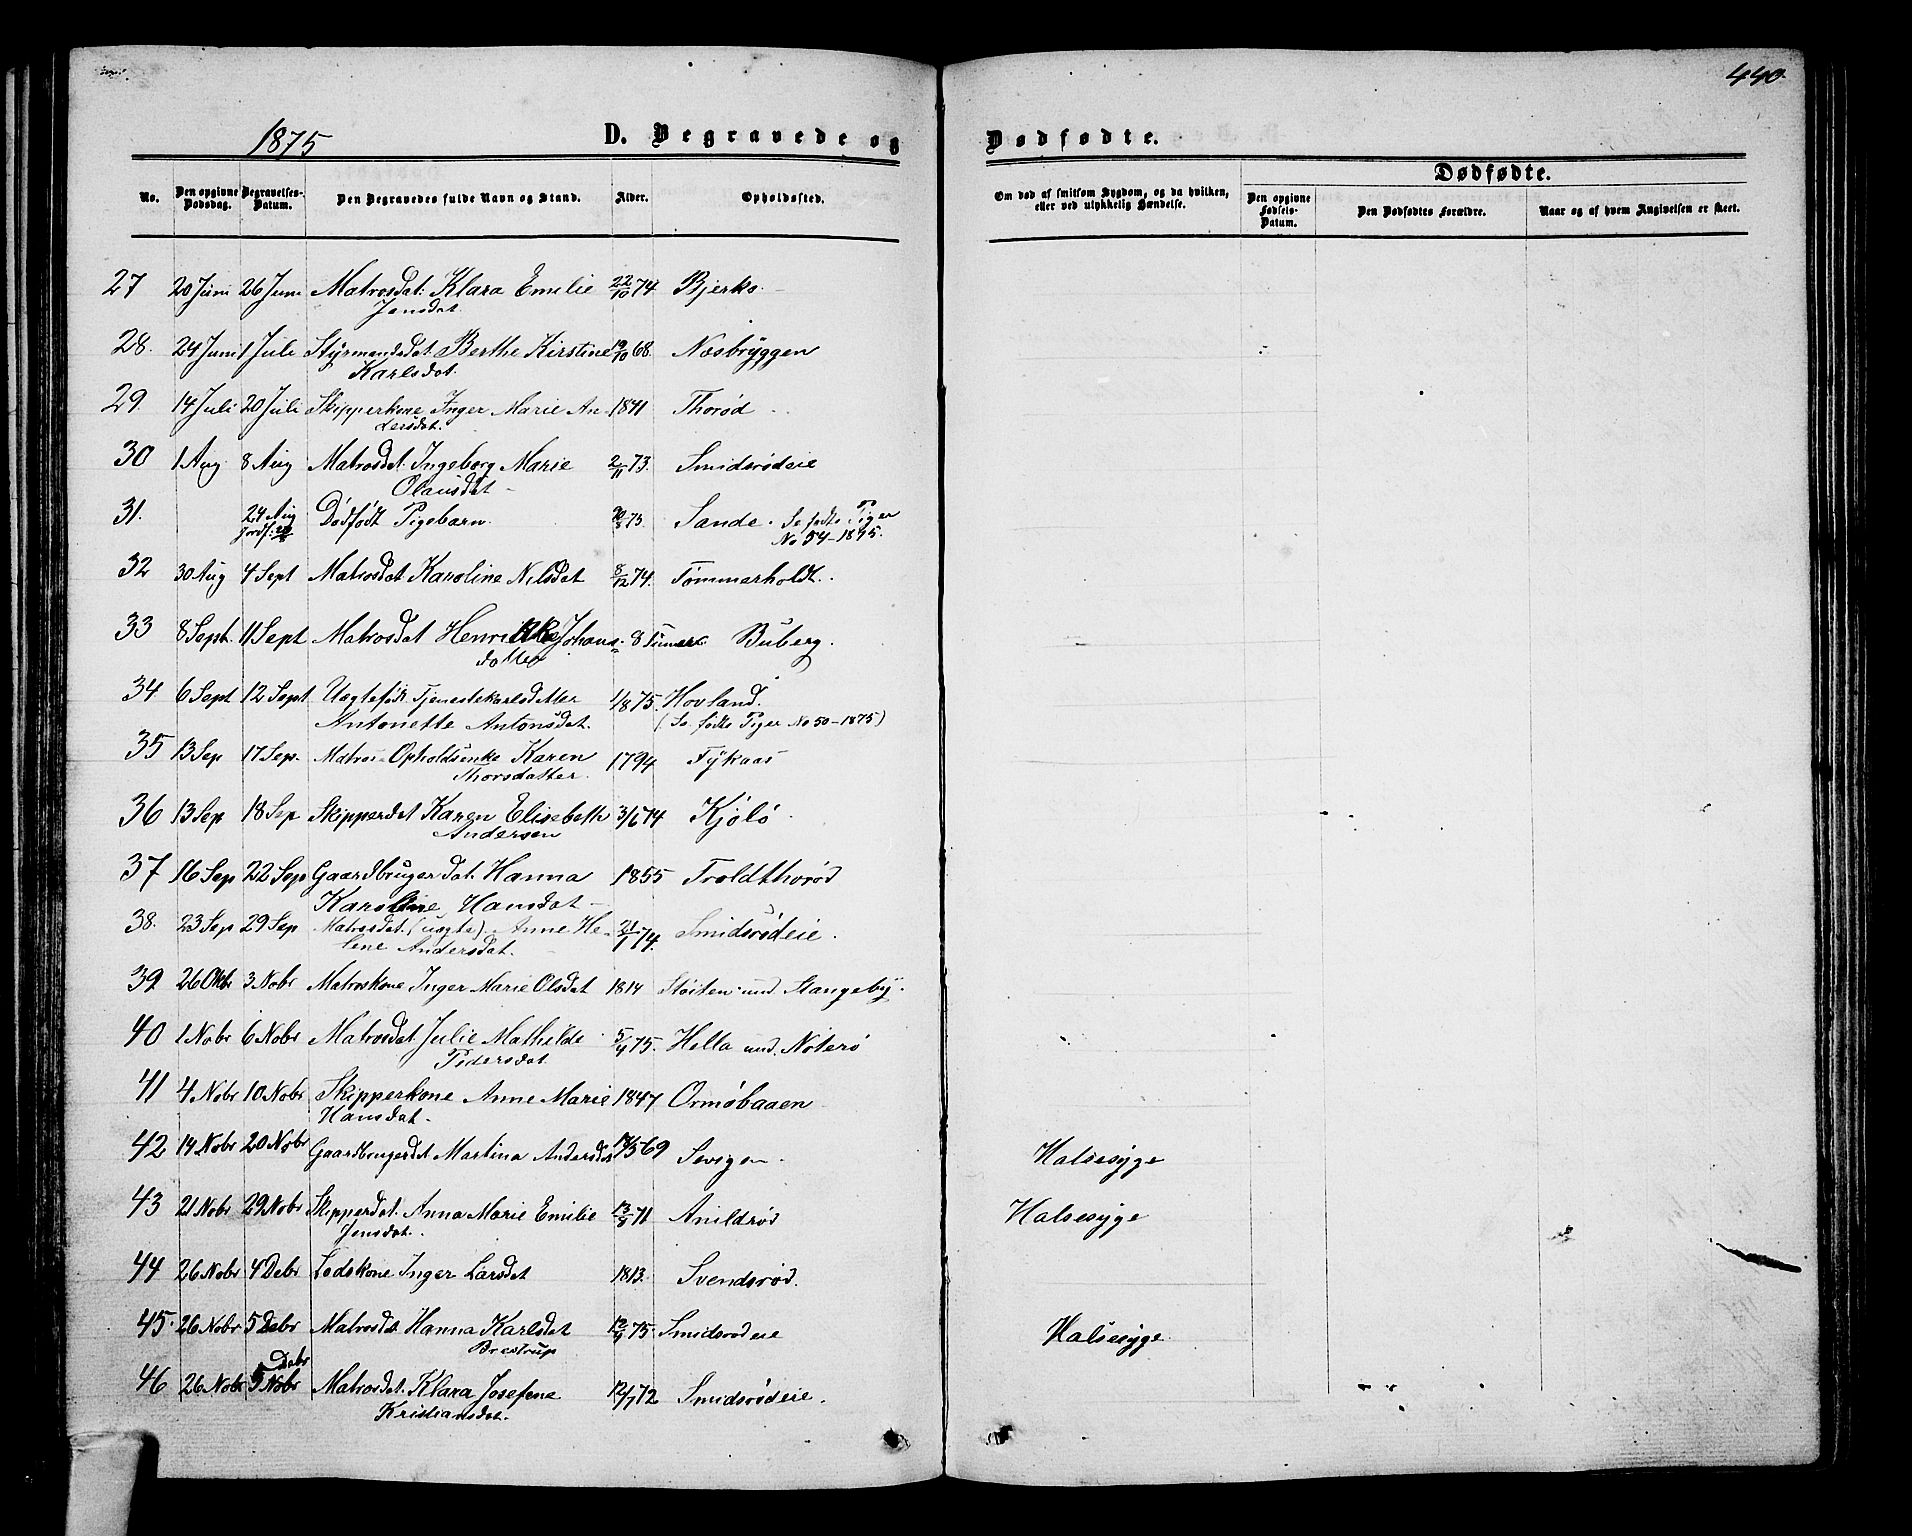 440.
1875
D. Begravede og Dødfødte.
Dødfødte.
No.
Den opgivne Dødsdag.
Begravelses-Datum.
Den Begravedes fulde Navn og Stand.
Alder.
Opholdssted.
Om død af smitsom Sygdom, og da hvilken, eller ved ulykkelig Hændelse.
Den opgivne Fødsels-Datum.
Den Dødfødtes Forældre.
Naar og af hvem Angivelsen er skeet.
27 20 Juni 26 Juni Matrosdat: Klara Emilie 22/10 74 Bjerkø.
Jensdat.
28. 24 Juni 1 Juli Styrmandsdat Berthe Kirstine 19/10 68. Næsbryggen
Karlsdat.
29. 14 Juli 20 Juli Skipperkone Inger Marie An- 1841 Thorød
dersdat.
30 1 Aug 8 Aug Matrosdat. Ingeborg Marie 2/11 73. Smidsrødeie
Olausdat
31. 24 Aug Dødfødt Pigebarn. 20/8 75. Sande. Se fødte Piger
No 54-1875.
32 30 Aug 4 Sept Matrosdat Karoline Nilsdat 8/12 74. Tømmerholdt.
33 8 Sept. 11 Sept Matrosdat Henrikke Johans- 8 Timer. Buberg.
datter
34 6 Sept 12 Sept Uægtefødt Tjenestekarlsdatter 1/8 75. Hovland.
Antonette Antonsdat. (Se fødte Piger No 50-1875)
35 13 Sep 17 Sep. Matros-Opholdsenke Karen 1794 Fykaas
Thorsdatter.
36 13 Sep 18 Sep Skipperdat Karen Elisebeth 3/6 74 Kjølø
Andersen
37 16 Sep 22 Sep Gaardbrugerdat. Hanna 1855 Troldthorød
Karoline Hansdat
38. 23 Sep 29 Sep Matrosdat. (uægte) Anne He- 21/1 74. Smidsrødeie.
lene Andersdat.
39 26 Oktbr 3 Nobr Matroskone Inger Marie Olsdat 1814 Støiten und Stangeby.
40 1 Nobr 6 Nobr Matrosdat. Julie Mathilde 5/4 75. Hella und. Nøterø
Pedersdat.
41 4 Nobr 10 Nobr Skipperkone Anne Marie 1847 Ormøbaaen
Hansdat.
42 14 Nobr 20 Nobr Gaardbrugerdat Martina Andersdat 17/3 69 Sevigen. Halsesyge
43 21 Nobr 29 Nobr Skipperdat. Anna Marie Emilie 13/8 71 Anildrød Halsesyge
Jensdat.
44 26 Nobr 4 Debr Lodskone Inger Larsdat 1813. Svendsrød.
45. 26 Nobr 5 Debr Matrosdat Hanna Karlsdat 12/4 75. Smidsrødeie Halsesyge
Brestrup
Debr
46 26 Nobr 5 Nobr Matrosdat. Klara Josefine 12/7 72 Smidsrødeie.
Kristiansdat.